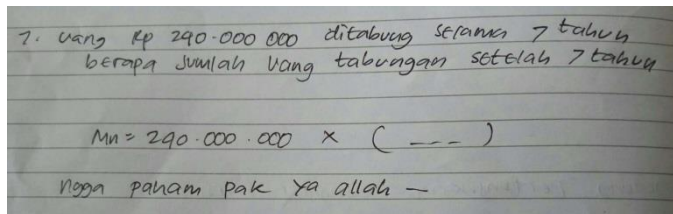 7. Uang Rp 290.000 000 ditabung selama 7 tahun
berapa jumlah uang tabungan setelah 7 tahun
Mn = 290.000.000 × ( --- )
ngga paham pak ya allah —